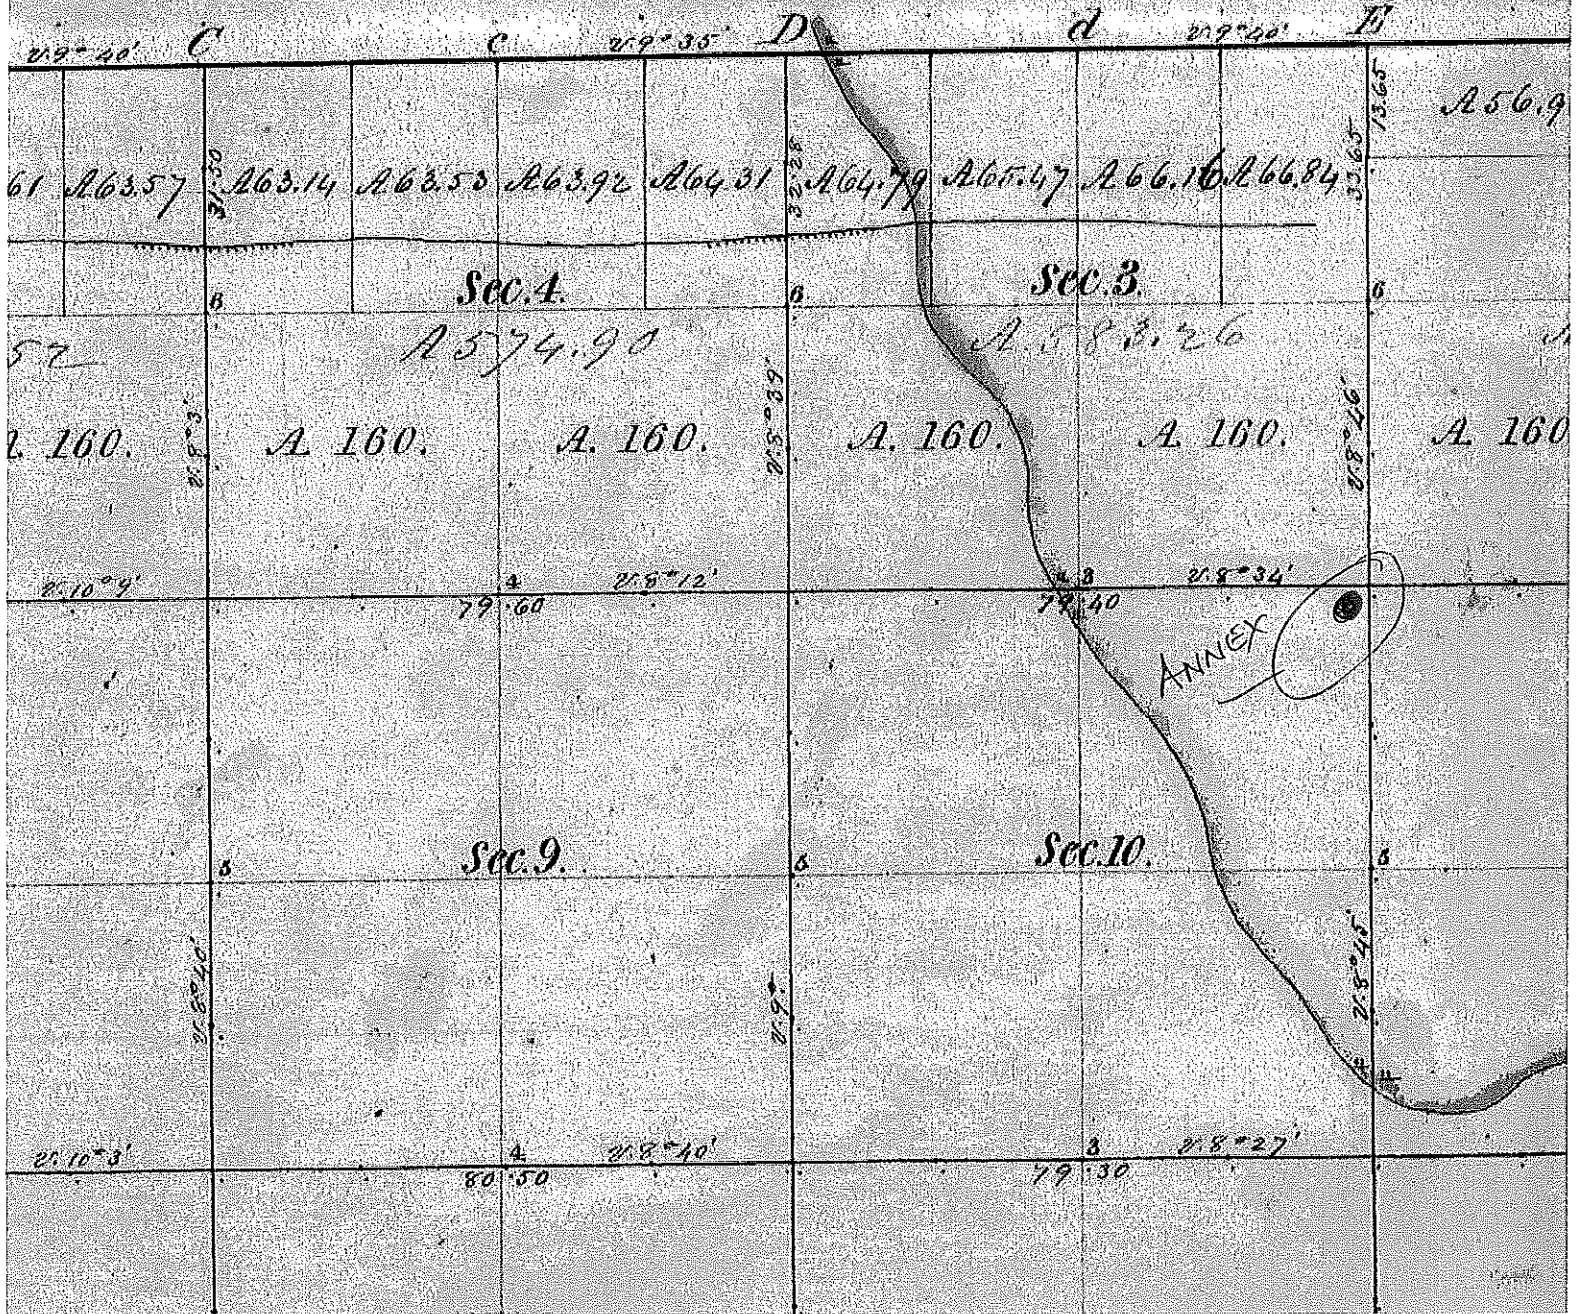 v. 9° 40' C c v. 9° 35' D d v. 9° 40' E
13.65
A 56.9
61 A 63.57 31.50 A 63.14 A 63.53 A 63.92 A 64.31 32.28 A 64.79 A 65.47 A 66.16 A 66.84 33.65
Sec. 4. Sec. 3.
52 A 574.90 A. 583.26
A. 160. v. 8° 3' A. 160. A. 160. v. 8° 39' A. 160. A. 160. v. 8° 46' A. 160
v. 10° 9' 4 v. 8° 12' 3 v. 8° 34'
79.60 79.40
ANNEX
Sec. 9. Sec. 10.
v. 8° 40' v. 9° v. 8° 45'
v. 10° 3' 4 v. 8° 40' 3 v. 8° 27'
80.50 79.30